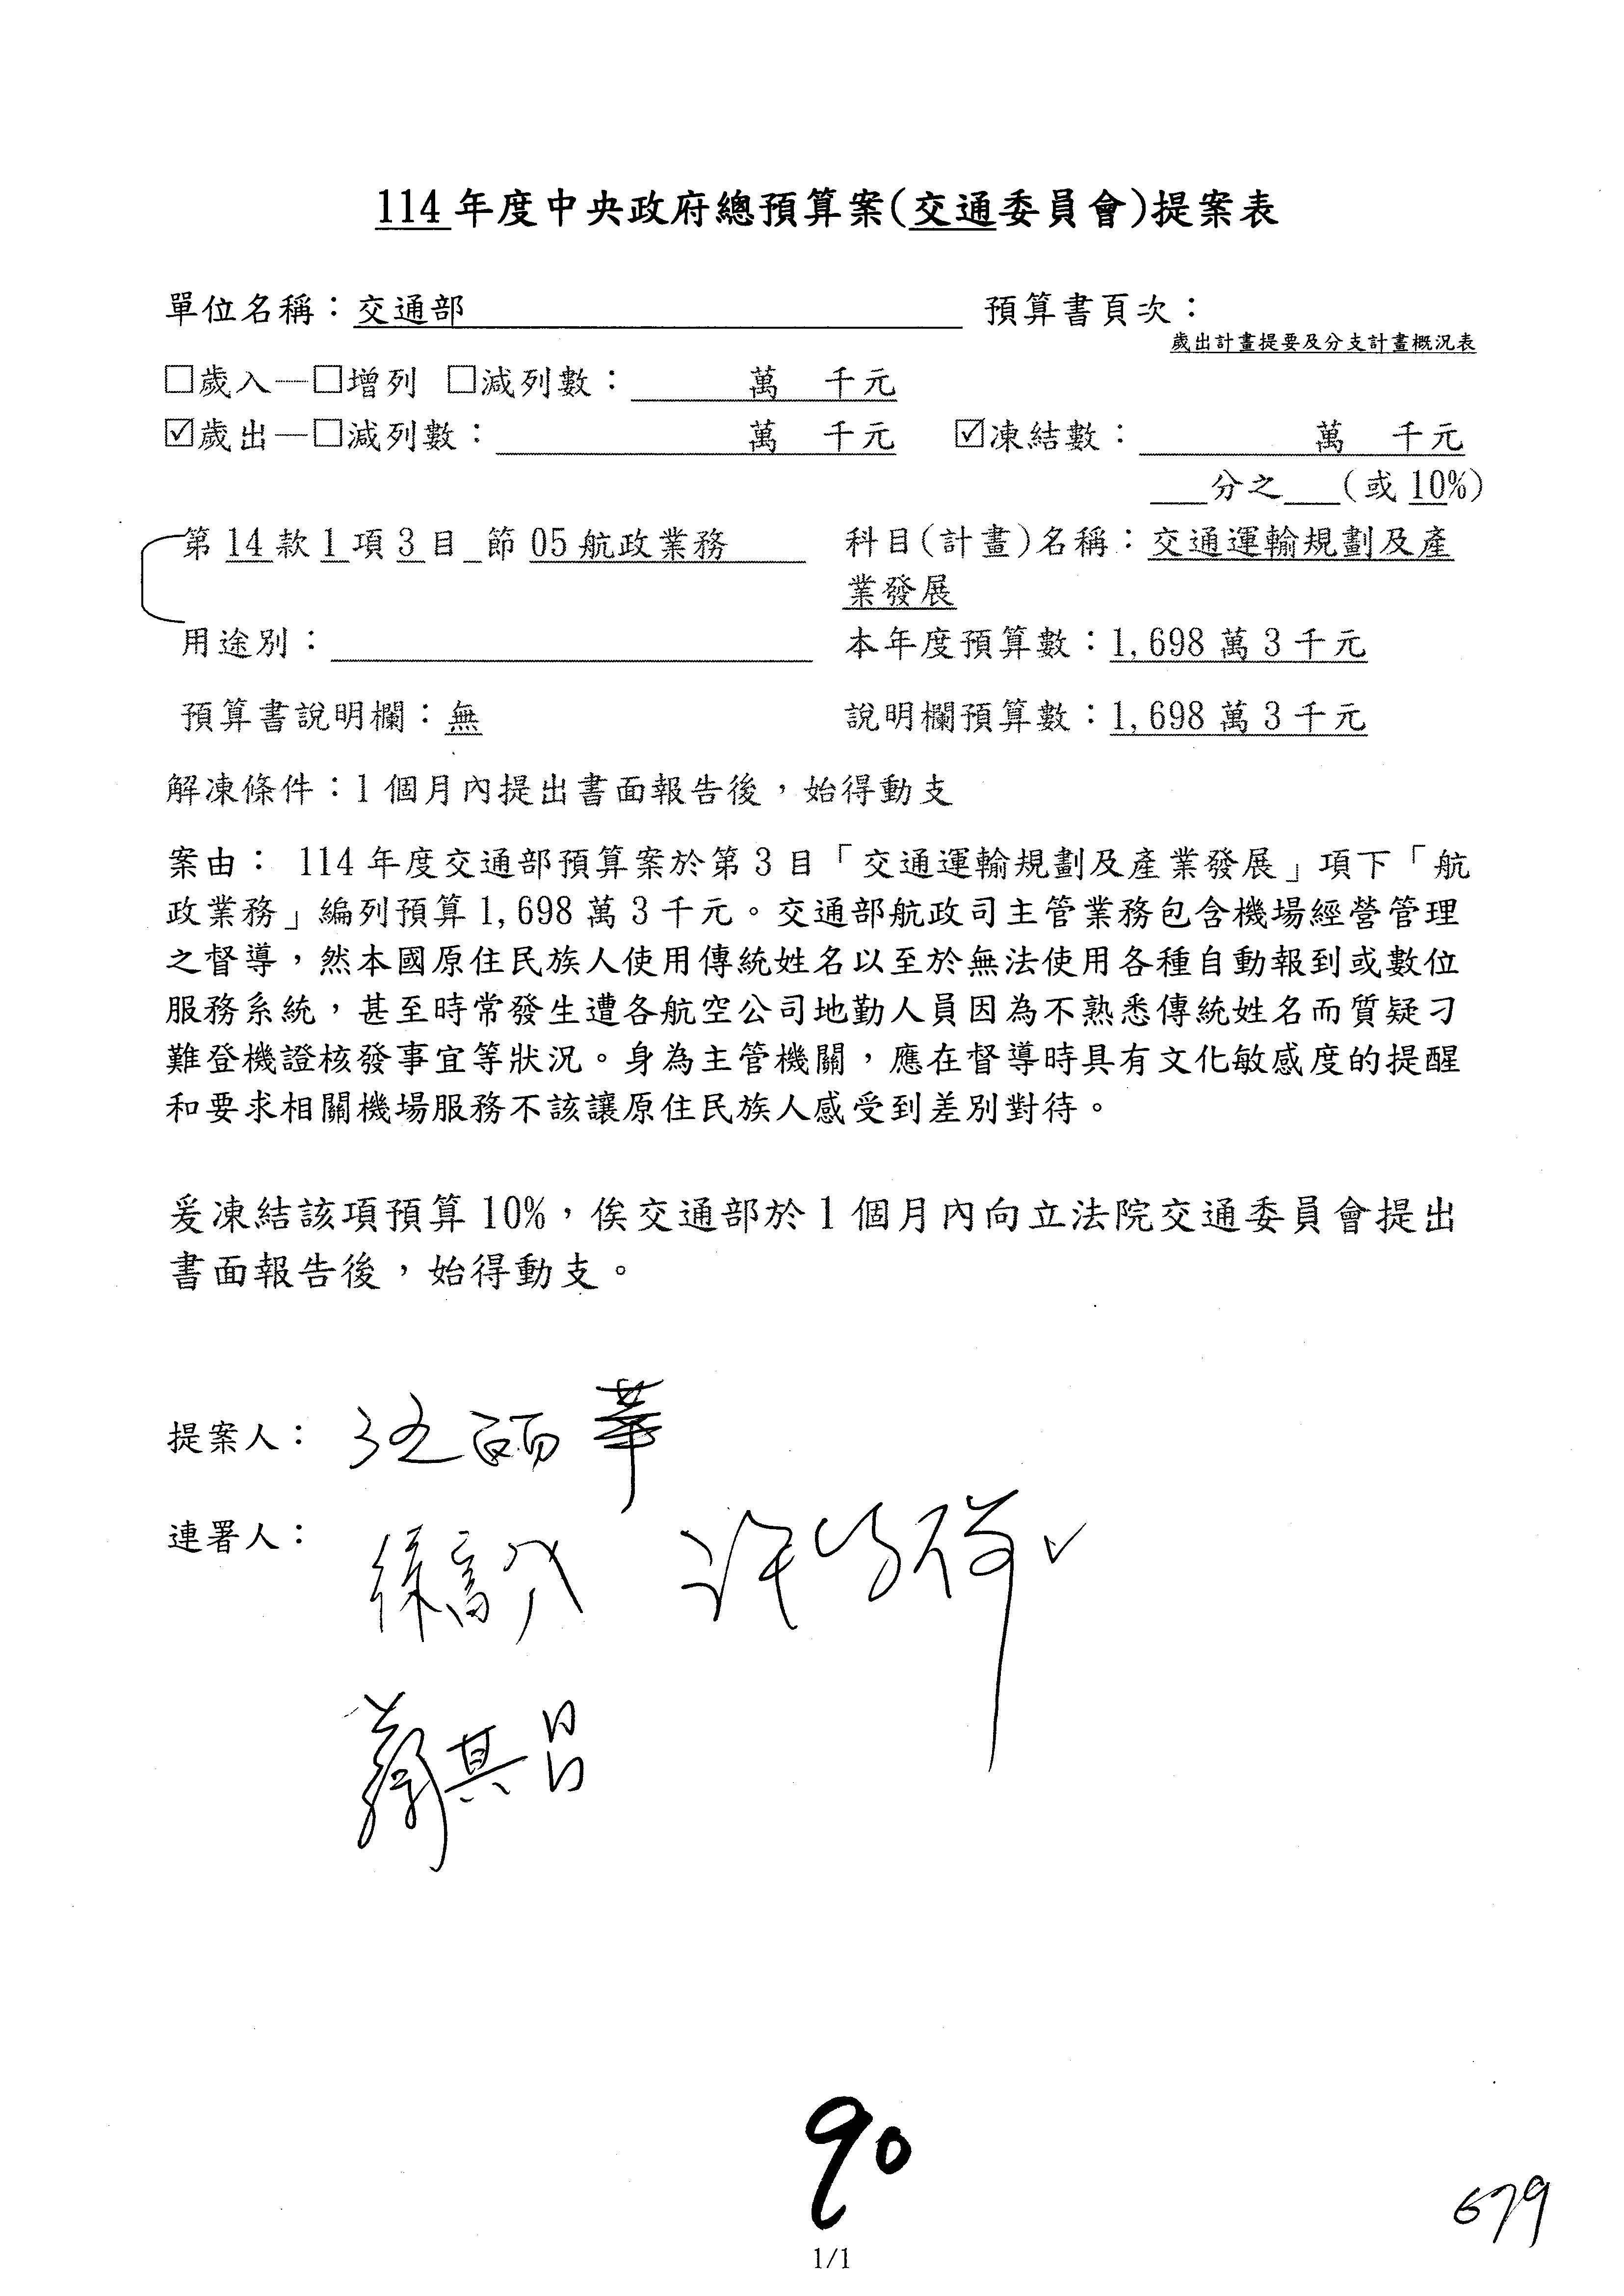 114年度中央政府總預算案(交通委員會)提案表
單位名稱：交通部 預算書頁次：
歲出計畫提要及分支計畫概況表
□歲入—□增列 □減列數： 萬 千元
☑歲出—□減列數： 萬 千元 ☑凍結數： 萬 千元
___分之___(或10%)
第14款1項3目_節05航政業務 科目(計畫)名稱：交通運輸規劃及產
業發展
用途別： 本年度預算數：1,698萬3千元
預算書說明欄：無 說明欄預算數：1,698萬3千元
解凍條件：1個月內提出書面報告後，始得動支
案由： 114年度交通部預算案於第3目「交通運輸規劃及產業發展」項下「航
政業務」編列預算1,698萬3千元。交通部航政司主管業務包含機場經營管理
之督導，然本國原住民族人使用傳統姓名以至於無法使用各種自動報到或數位
服務系統，甚至時常發生遭各航空公司地勤人員因為不熟悉傳統姓名而質疑刁
難登機證核發事宜等狀況。身為主管機關，應在督導時具有文化敏感度的提醒
和要求相關機場服務不該讓原住民族人感受到差別對待。
爰凍結該項預算10%，俟交通部於1個月內向立法院交通委員會提出
書面報告後，始得動支。
提案人： 伍麗華
連署人： 徐富癸 許智傑
蔡其昌
90
679
1/1